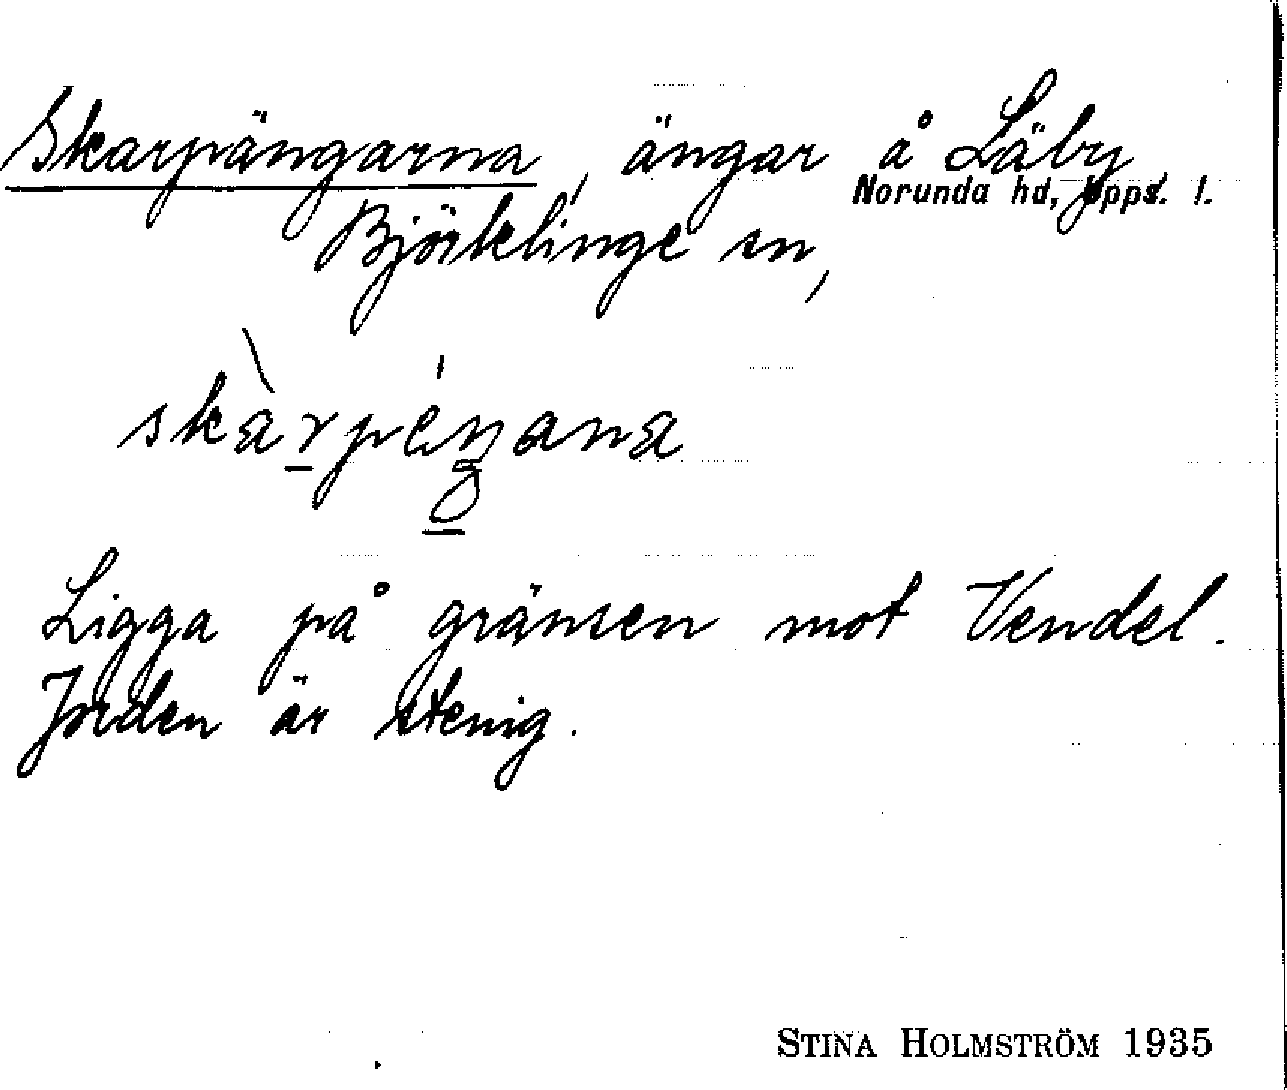 Skarpängarna, ängar å Läby,
Norunda hd, Upps. l.
Björklinge sn,
skàrpéŋana
Ligga på gränsen mot Vendel.
Jorden är stenig.
STINA HOLMSTRÖM 1935